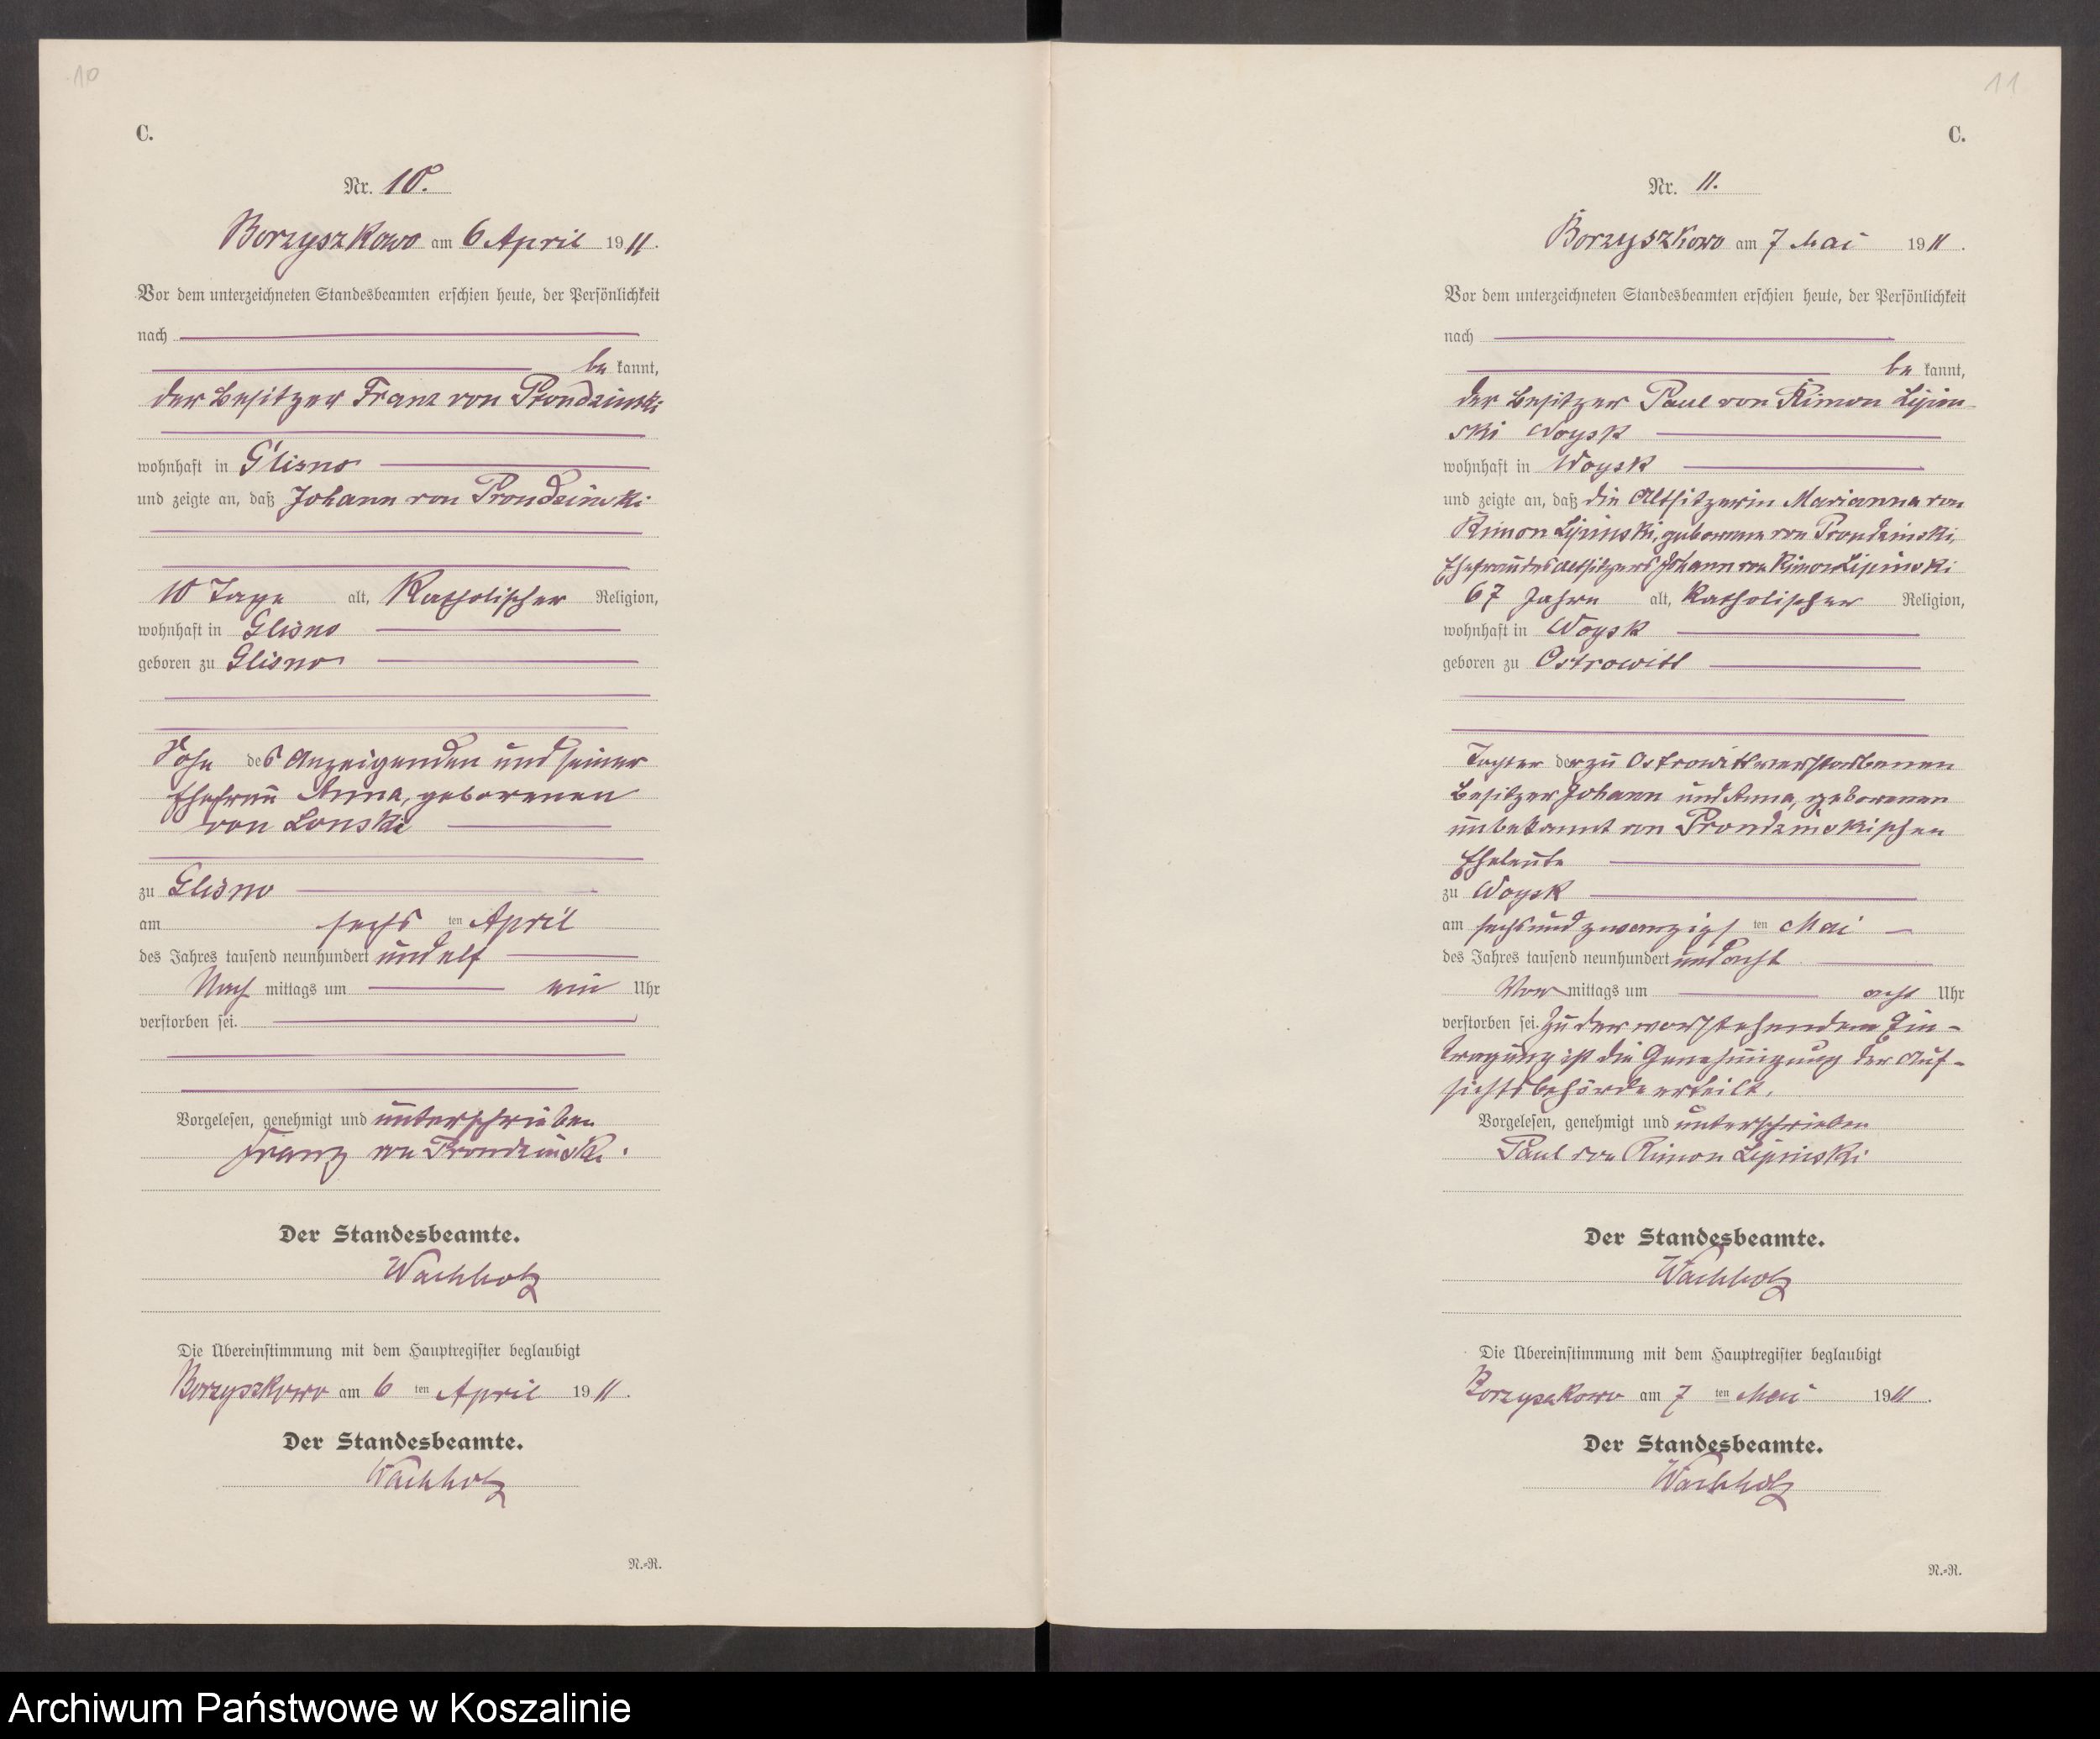 10
C.
Nr. 10.
Borzyszkowo am 6 April 1911.
Vor dem unterzeichneten Standesbeamten erschien heute, der Persönlichkeit
nach
be kannt,
der Besitzer Franz von Prondzinski
wohnhaft in Glisno
und zeigte an, daß Johann von Prondzinski
10 Tage alt, Katholischer Religion,
wohnhaft in Glisno
geboren zu Glisno
Sohn des Anzeigenden und seiner
Ehefrau Anna, geborenen
von Lonski
zu Glisno
am sechs ten April
des Jahres tausend neunhundert und elf
Nach mittags um ein Uhr
verstorben sei.
Vorgelesen, genehmigt und unterschrieben
Franz von Prondzinski.
Der Standesbeamte.
Wachholz
Die Übereinstimmung mit dem Hauptregister beglaubigt
Borzyszkowo am 6 ten April 1911.
Der Standesbeamte.
Wachholz
N.=R.
11
C.
Nr. 11.
Borzyszkowo am 7 Mai 1911.
Vor dem unterzeichneten Standesbeamten erschien heute, der Persönlichkeit
nach
be kannt,
der Besitzer Paul von Rimon Lipin-
ski Woysk
wohnhaft in Woysk
und zeigte an, daß die Altsitzerin Marianna von
Rimon Lipinski, geborene von Prondzinski,
Ehefrau des Altsitzers Johann von Rimon Lipinski
67 Jahre alt, Katholischer Religion,
wohnhaft in Woysk
geboren zu Ostrowitt
Tochter der zu Ostrowitt verstorbenen
Besitzer Johann und Anna, geborenen
unbekannt von Prondzinskischen
Eheleute
zu Woysk
am sechsundzwanzigs ten Mai
des Jahres tausend neunhundert und acht
Vor mittags um acht Uhr
verstorben sei. Zu der vorstehenden Ein-
tragung ist die Genehmigung der Auf-
sichtsbehörde erteilt.
Vorgelesen, genehmigt und unterschrieben
Paul von Rimon Lipinski
Der Standesbeamte.
Wachholz
Die Übereinstimmung mit dem Hauptregister beglaubigt
Borzyszkowo am 7 ten Mai 1911.
Der Standesbeamte.
Wachholz
N.=R.
Archiwum Państwowe w Koszalinie